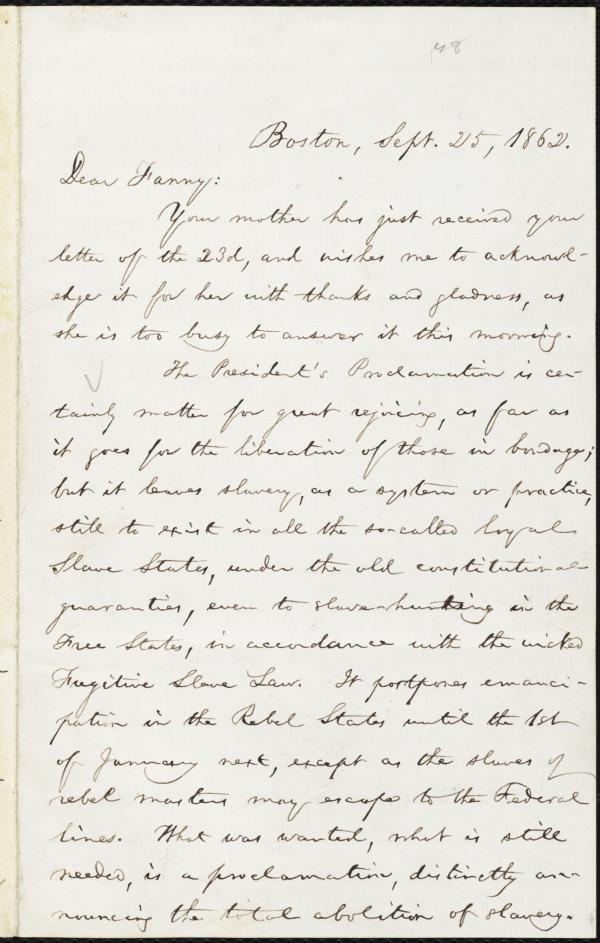 48
Boston, Sept. 25, 1862.
Dear Fanny:
Your mother has just received your
letter of the 23d, and wishes me to acknowl-
edge it for her with thanks and gladness, as
she is too busy to answer it this morning.
The President's Proclamation is cer-
tainly matter for great rejoicing, as far as
it goes for the liberation of those in bondage;
but it leaves slavery, as a system or practice,
still to exist in all the so-called loyal
Slave States, under the old constitutional
guaranties, even to slave-hunting in the
Free States, in accordance with the wicked
Fugitive Slave Law. It postpones emanci-
pation in the Rebel States until the 1st
of January next, except as the slaves of
rebel masters may escape to the Federal
lines. What was wanted, what is still
needed, is a proclamation, distinctly an-
nouncing the total abolition of slavery.